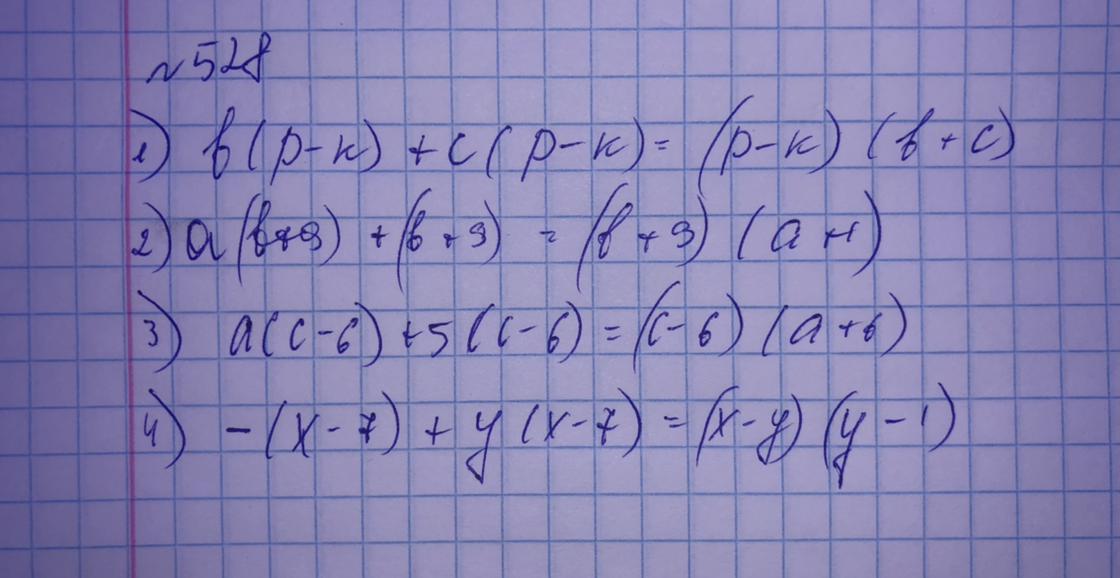 №528
1) в(р-к) + с(р-к) = (р-к) (в+с)
2) а(в+9) + (в+9) = (в+9) (а+1)
3) а(с-6) +5(с-6) = (с-6) (а+6)
4) -(х-7) + у(х-7) = (х-у) (у-1)